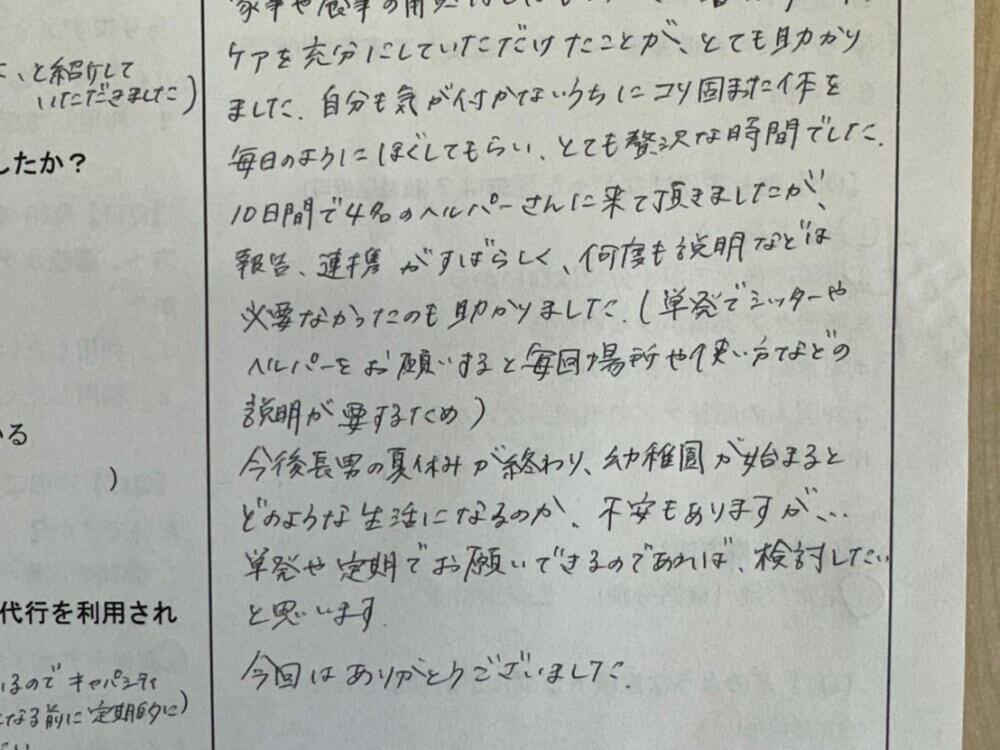 、と紹介して
いただきました)
したか?
いる
)
代行を利用され
いるので キャパシティ
なる前に定期的に)
家事や
ケアを充分にしていただけたことが、とても助かり
ました。自分も気が付かないうちにコリ固まった体を
毎日のようにほぐしてもらい、とても贅沢な時間でした。
10日間で4名のヘルパーさんに来て頂きましたが、
報告、連携がすばらしく、何度も説明などは
必要なかったのも助かりました。(単発でシッターや
ヘルパーをお願いすると毎回場所や使い方などの
説明が要するため)
今後長男の夏休みが終わり、幼稚園が始まると
どのような生活になるのか、不安もありますが、…
単発や定期でお願いできるのであれば、検討したい
と思います。
今回はありがとうございました。